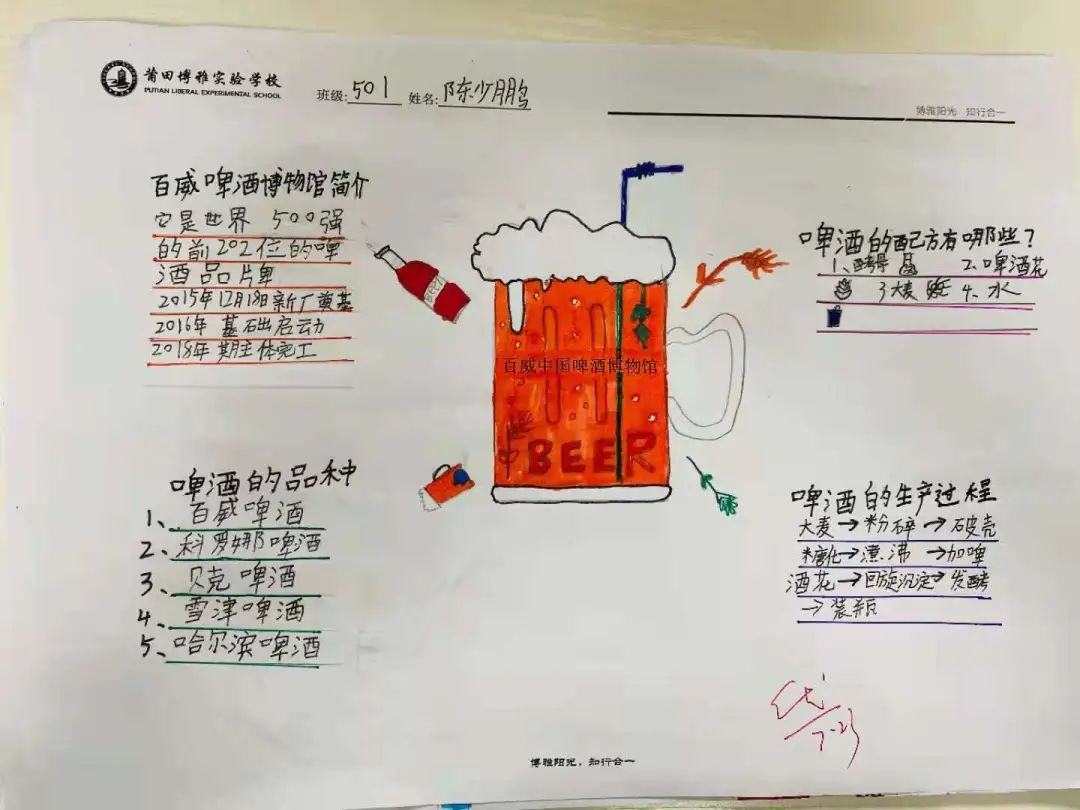 莆田博雅实验学校
PUTIAN LIBERAL EXPERIMENTAL SCHOOL
班级:501 姓名:陈少鹏
博雅阳光 知行合一
百威啤酒博物馆简介
它是世界 500强
的前202位的啤
酒品片牌
2015年12月18日新厂奠基
2016年 基础启动
2018年 期主体完工
啤酒的配方有哪些?
1、酵母 2、啤酒花
3大麦 4、水
BEER
百威中国啤酒博物馆
BEER
啤酒的品种
1、百威啤酒
2、科罗娜啤酒
3、贝克啤酒
4、雪津啤酒
5、哈尔滨啤酒
啤酒的生产过程
大麦→粉碎→破壳
糖化→煮沸→加啤
酒花→回旋沉淀→发酵
→装瓶
优
7.23
博雅阳光,知行合一